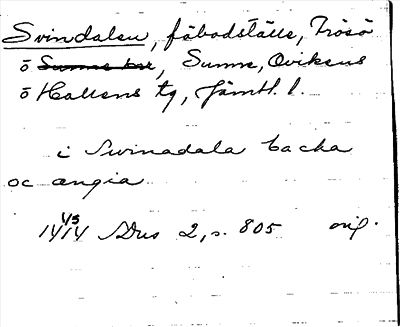 Svindalen, fäbodställe, Trösö
ö Sunne, Oviksns
ö Hallens tg, Jämtl. l.
i Swinadala backa
oc ængia
1/5
1414 SDns 2, s. 805 orig.